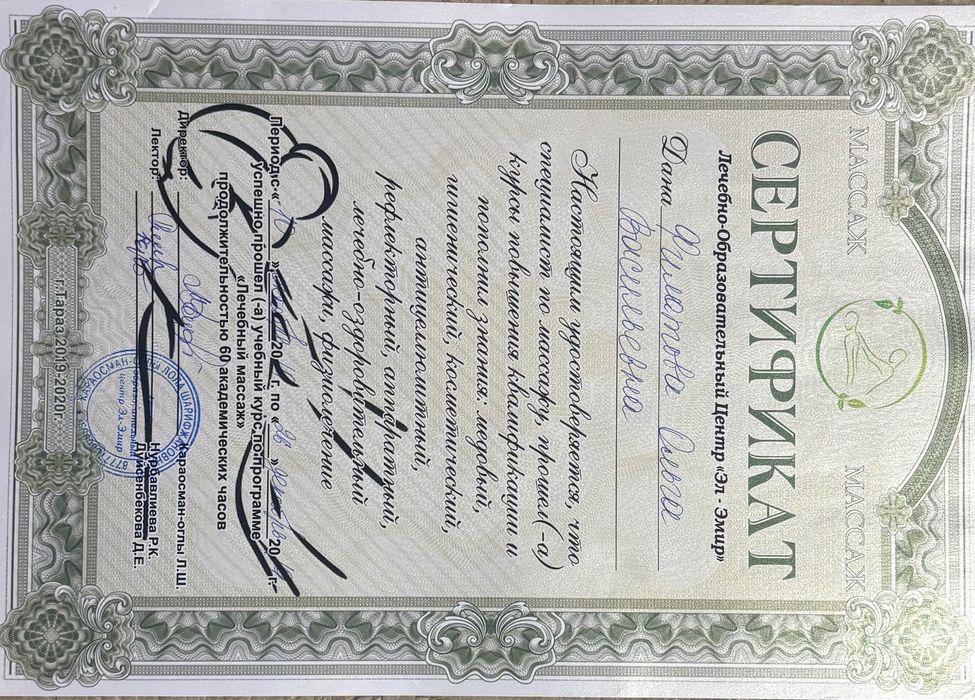 МАССАЖ МАССАЖ
СЕРТИФИКАТ
Лечебно-Образовательный Центр «Эл - Эмир»
Дана Ольге
Васильевна
Настоящим удостоверяется, что
специалист по массажу, прошел(-а)
курсы повышения квалификации и
пополнил знания: медовый,
гигиенический, косметический,
антицеллюлитный,
рефлекторный, аппаратный,
лечебно-оздоровительный
массажи, физиолечение
Период с « » 20 г. по «26 » 20 г.
успешно прошел (-а) учебный курс по программе
«Лечебный массаж»
продолжительностью 60 академических часов
Директор: Караосман-оглы Л.Ш.
Лектор: Нурбавлиева Р.К.
Дуйсенбекова Д.Е.
г.Тараз 2019-2020г.